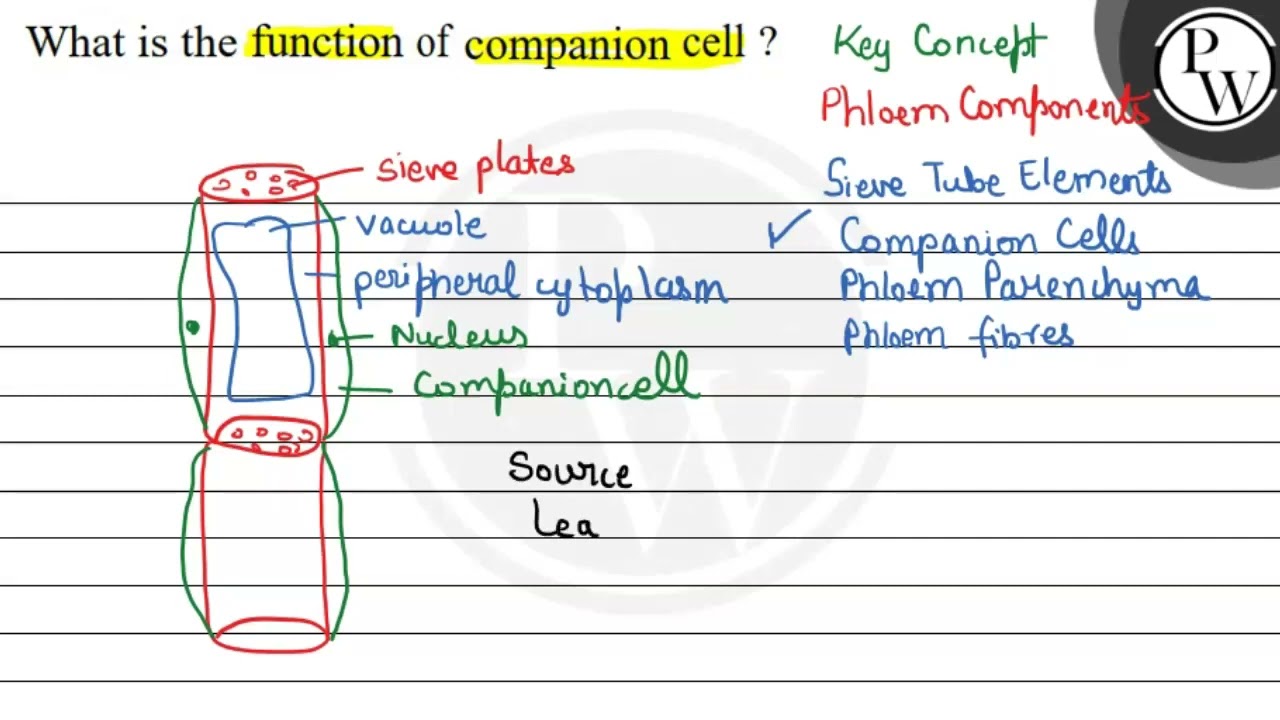 What is the function of companion cell ?
Key Concept
Phloem Components
Sieve Tube Elements
✓ Companion Cells
Phloem Parenchyma
Phloem fibres
sieve plates
vacuole
peripheral cytoplasm
Nucleus
Companioncell
Source
Lea
PW